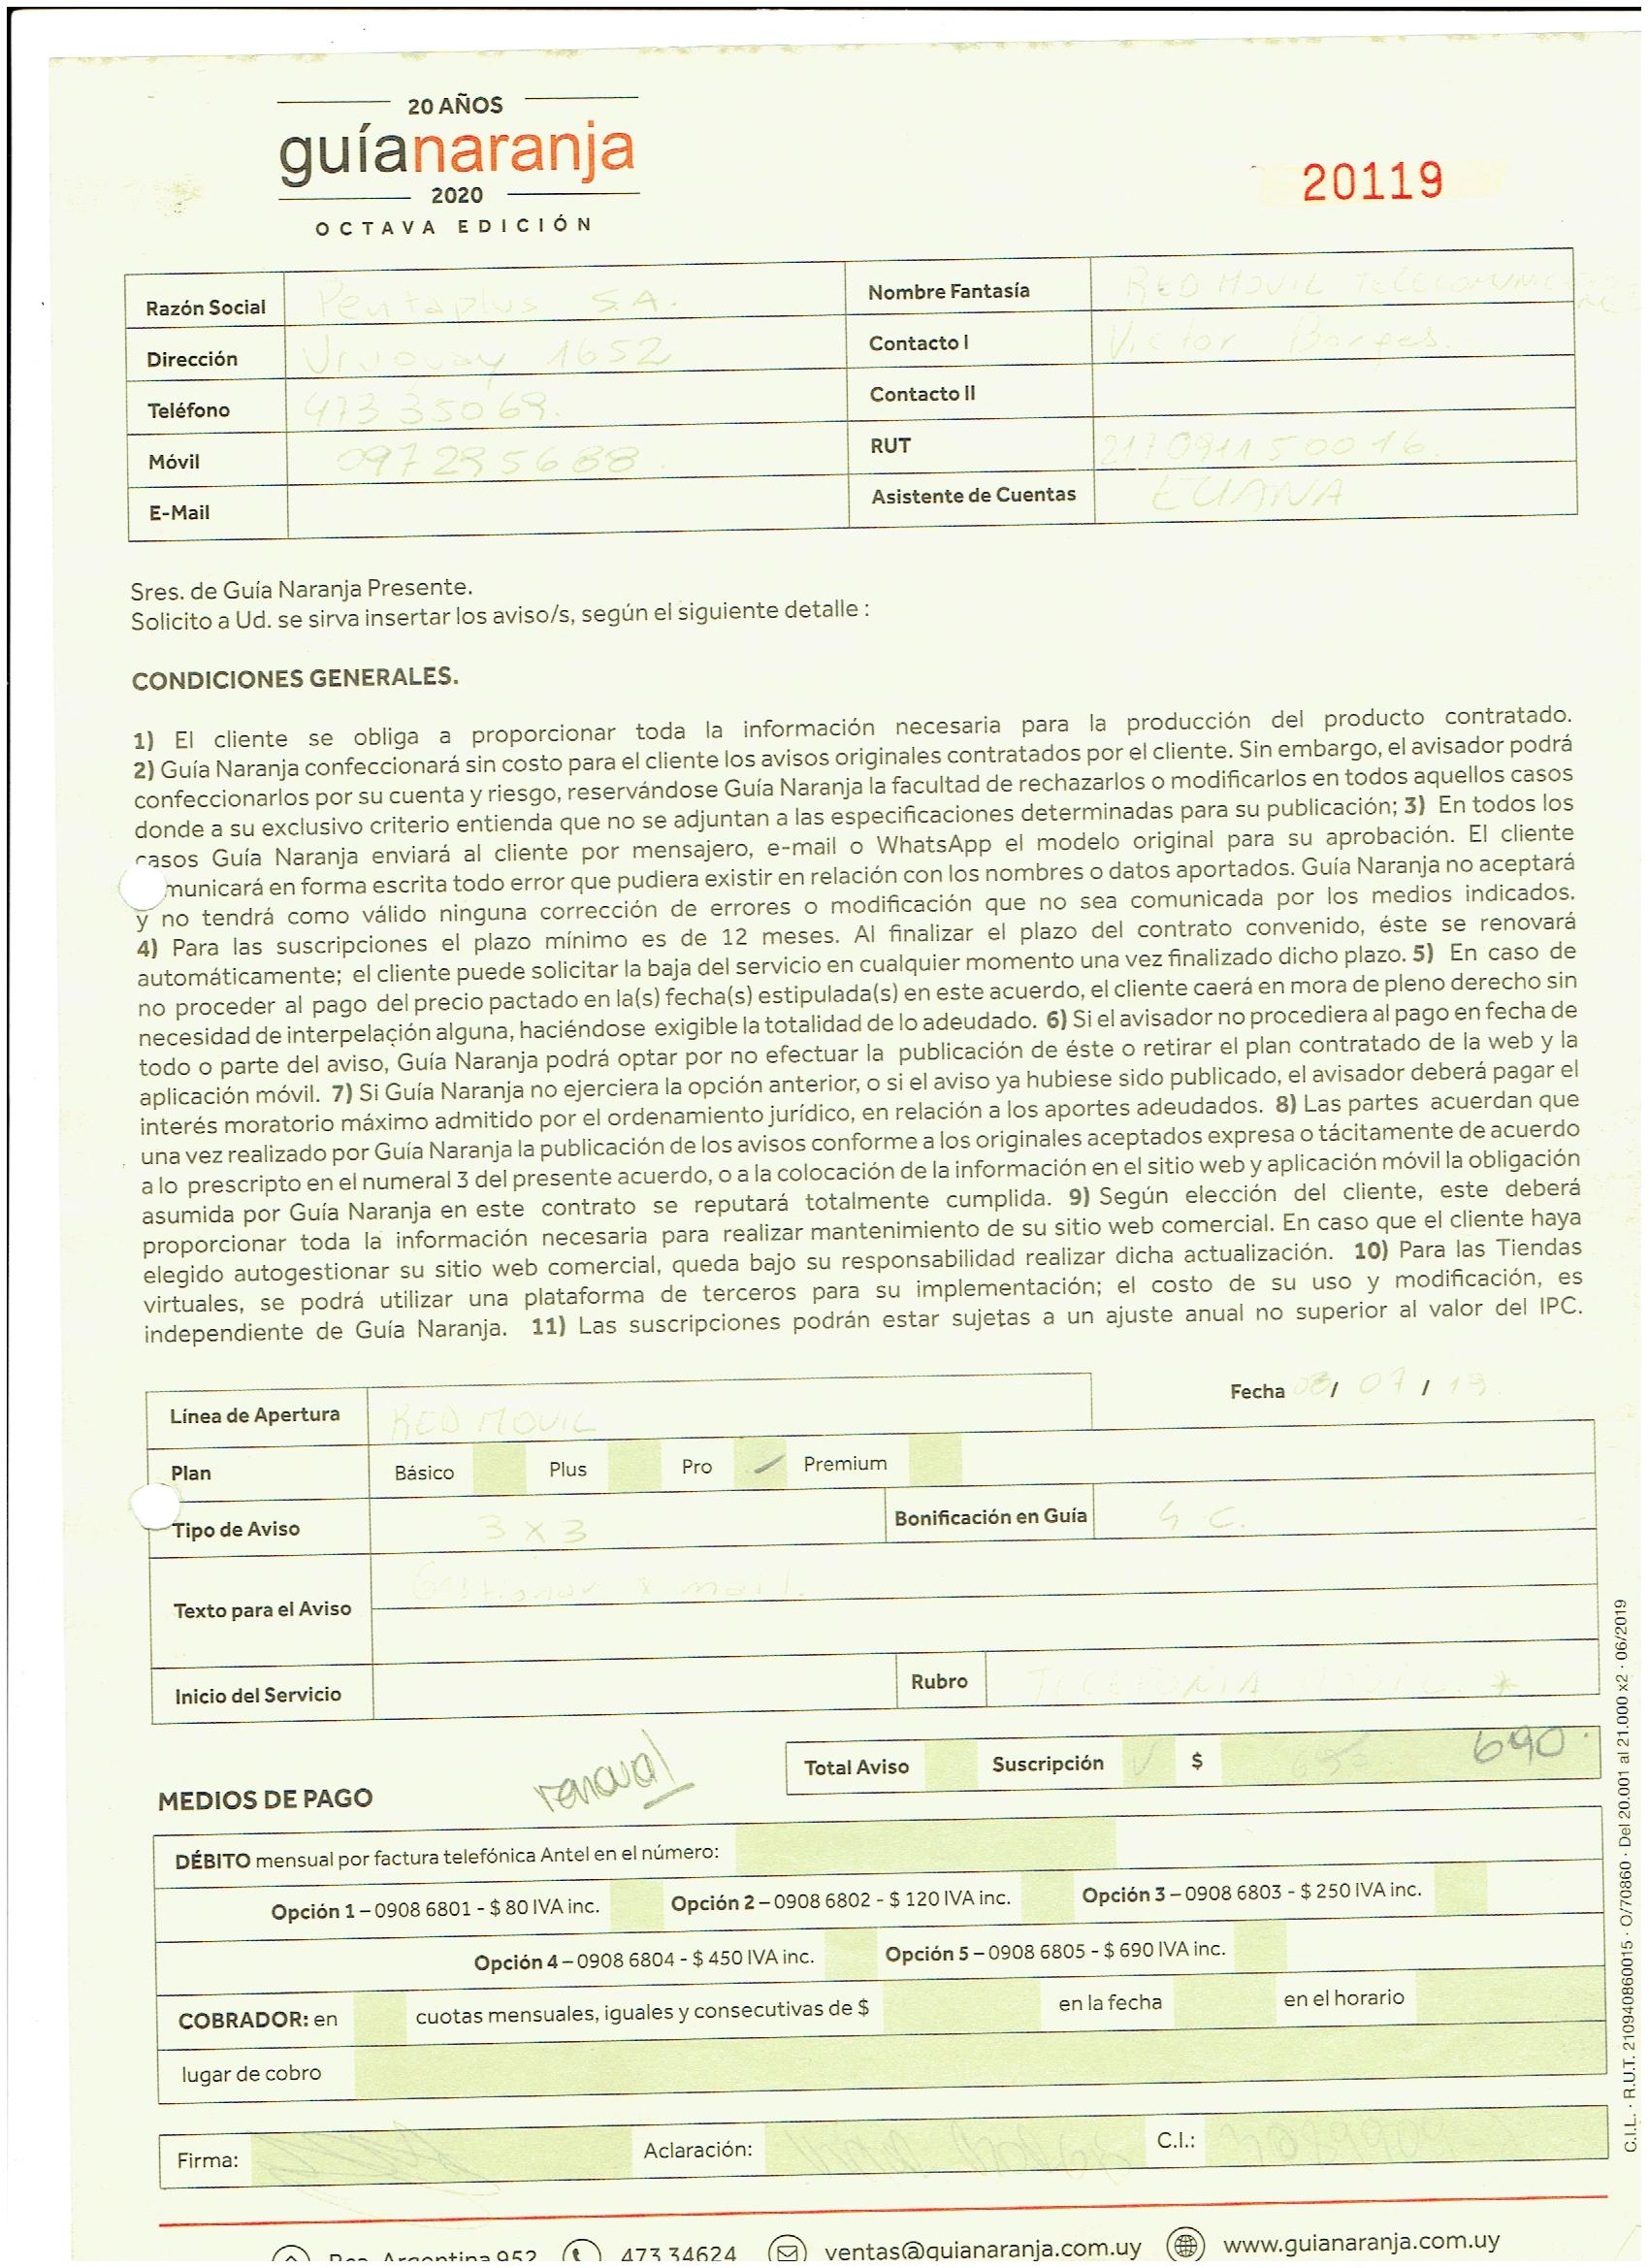 20 AÑOS
guíanaranja
2020
OCTAVA EDICIÓN
20119
Razón Social Pentaplus S.A. Nombre Fantasía RED MOVIL
Dirección Uruguay 1652 Contacto I Victor Borges.
Teléfono 473 35069. Contacto II
Móvil 097295688. RUT
E-Mail Asistente de Cuentas
Sres. de Guía Naranja Presente.
Solicito a Ud. se sirva insertar los aviso/s, según el siguiente detalle :
CONDICIONES GENERALES.
1) El cliente se obliga a proporcionar toda la información necesaria para la producción del producto contratado.
2) Guía Naranja confeccionará sin costo para el cliente los avisos originales contratados por el cliente. Sin embargo, el avisador podrá
confeccionarlos por su cuenta y riesgo, reservándose Guía Naranja la facultad de rechazarlos o modificarlos en todos aquellos casos
donde a su exclusivo criterio entienda que no se adjuntan a las especificaciones determinadas para su publicación; 3) En todos los
casos Guía Naranja enviará al cliente por mensajero, e-mail o WhatsApp el modelo original para su aprobación. El cliente
municará en forma escrita todo error que pudiera existir en relación con los nombres o datos aportados. Guía Naranja no aceptará
y no tendrá como válido ninguna corrección de errores o modificación que no sea comunicada por los medios indicados.
4) Para las suscripciones el plazo mínimo es de 12 meses. Al finalizar el plazo del contrato convenido, éste se renovará
automáticamente; el cliente puede solicitar la baja del servicio en cualquier momento una vez finalizado dicho plazo. 5) En caso de
no proceder al pago del precio pactado en la(s) fecha(s) estipulada(s) en este acuerdo, el cliente caerá en mora de pleno derecho sin
necesidad de interpelación alguna, haciéndose exigible la totalidad de lo adeudado. 6) Si el avisador no procediera al pago en fecha de
todo o parte del aviso, Guía Naranja podrá optar por no efectuar la publicación de éste o retirar el plan contratado de la web y la
aplicación móvil. 7) Si Guía Naranja no ejerciera la opción anterior, o si el aviso ya hubiese sido publicado, el avisador deberá pagar el
interés moratorio máximo admitido por el ordenamiento jurídico, en relación a los aportes adeudados. 8) Las partes acuerdan que
una vez realizado por Guía Naranja la publicación de los avisos conforme a los originales aceptados expresa o tácitamente de acuerdo
a lo prescripto en el numeral 3 del presente acuerdo, o a la colocación de la información en el sitio web y aplicación móvil la obligación
asumida por Guía Naranja en este contrato se reputará totalmente cumplida. 9) Según elección del cliente, este deberá
proporcionar toda la información necesaria para realizar mantenimiento de su sitio web comercial. En caso que el cliente haya
elegido autogestionar su sitio web comercial, queda bajo su responsabilidad realizar dicha actualización. 10) Para las Tiendas
virtuales, se podrá utilizar una plataforma de terceros para su implementación; el costo de su uso y modificación, es
independiente de Guía Naranja. 11) Las suscripciones podrán estar sujetas a un ajuste anual no superior al valor del IPC.
Fecha 08/ 07 / 19.
Línea de Apertura RED MOVIL
Plan Básico Plus Pro Premium
Tipo de Aviso 3 x 3 Bonificación en Guía
Texto para el Aviso Gestionar x mail.
Inicio del Servicio Rubro
renova
Total Aviso Suscripción $ 690
MEDIOS DE PAGO
DÉBITO mensual por factura telefónica Antel en el número:
Opción 1 – 0908 6801 - $ 80 IVA inc. Opción 2 – 0908 6802 - $ 120 IVA inc. Opción 3 – 0908 6803 - $ 250 IVA inc.
Opción 4 – 0908 6804 - $ 450 IVA inc. Opción 5 – 0908 6805 - $ 690 IVA inc.
COBRADOR: en cuotas mensuales, iguales y consecutivas de $ en la fecha en el horario
lugar de cobro
Firma: Aclaración: C.I.:
Rca. Argentina 952 473 34624 ventas@guianaranja.com.uy www.guianaranja.com.uy
C.I.L. · R.U.T. 210940860015 · O/70860 · Del 20.001 al 21.000 x2 · 06/2019